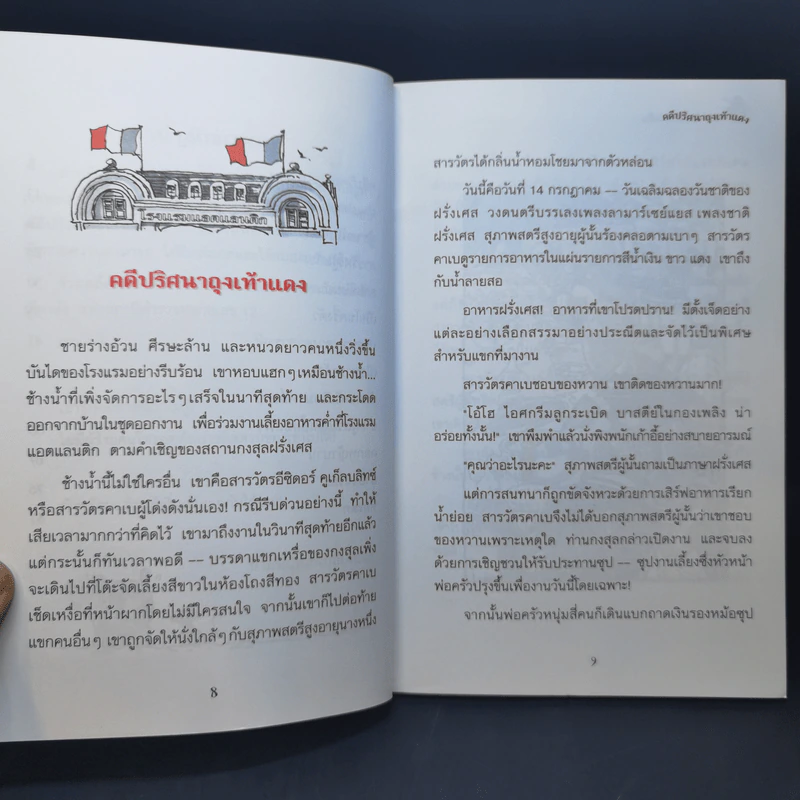 โรงแรมแอตแลนติก
คดีปริศนาถุงเท้าแดง
ชายร่างอ้วน ศีรษะล้าน และหนวดยาวคนหนึ่งวิ่งขึ้น
บันไดของโรงแรมอย่างรีบร้อน เขาหอบแฮกๆเหมือนช้างน้ำ...
ช้างน้ำที่เพิ่งจัดการอะไรๆเสร็จในนาทีสุดท้าย และกระโดด
ออกจากบ้านในชุดออกงาน เพื่อร่วมงานเลี้ยงอาหารค่ำที่โรงแรม
แอตแลนติก ตามคำเชิญของสถานกงสุลฝรั่งเศส
ช้างน้ำนี้ไม่ใช่ใครอื่น เขาคือสารวัตรอีซิดอร์ คูเก็ลบลิทซ์
หรือสารวัตรคาเบผู้โด่งดังนั่นเอง! กรณีรีบด่วนอย่างนี้ ทำให้
เสียเวลามากกว่าที่คิดไว้ เขามาถึงงานในวินาทีสุดท้ายอีกแล้ว
แต่กระนั้นก็ทันเวลาพอดี –– บรรดาแขกเหรื่อของกงสุลเพิ่ง
จะเดินไปที่โต๊ะจัดเลี้ยงสีขาวในห้องโถงสีทอง สารวัตรคาเบ
เช็ดเหงื่อที่หน้าผากโดยไม่มีใครสนใจ จากนั้นเขาก็ไปต่อท้าย
แขกคนอื่นๆ เขาถูกจัดให้นั่งใกล้ๆกับสุภาพสตรีสูงอายุนางหนึ่ง
8
คดีปริศนาถุงเท้าแดง
สารวัตรได้กลิ่นน้ำหอมโชยมาจากตัวหล่อน
วันนี้คือวันที่ 14 กรกฎาคม — วันเฉลิมฉลองวันชาติของ
ฝรั่งเศส วงดนตรีบรรเลงเพลงลามาร์เซย์แยส เพลงชาติ
ฝรั่งเศส สุภาพสตรีสูงอายุผู้นั้นร้องคลอตามเบาๆ สารวัตร
คาเบดูรายการอาหารในแผ่นรายการสีน้ำเงิน ขาว แดง เขาถึง
กับน้ำลายสอ
อาหารฝรั่งเศส! อาหารที่เขาโปรดปราน! มีตั้งเจ็ดอย่าง
แต่ละอย่างเลือกสรรมาอย่างประณีตและจัดไว้เป็นพิเศษ
สำหรับแขกที่มางาน
สารวัตรคาเบชอบของหวาน เขาติดของหวานมาก!
"โอ้โฮ ไอศกรีมลูกระเบิด บาสตีย์ในกองเพลิง น่า
อร่อยทั้งนั้น!" เขาพึมพำแล้วนั่งพิงพนักเก้าอี้อย่างสบายอารมณ์
"คุณว่าอะไรนะคะ" สุภาพสตรีผู้นั้นถามเป็นภาษาฝรั่งเศส
แต่การสนทนาก็ถูกขัดจังหวะด้วยการเสิร์ฟอาหารเรียก
น้ำย่อย สารวัตรคาเบจึงไม่ได้บอกสุภาพสตรีผู้นั้นว่าเขาชอบ
ของหวานเพราะเหตุใด ท่านกงสุลกล่าวเปิดงาน และจบลง
ด้วยการเชิญชวนให้รับประทานซุป –– ซุปงานเลี้ยงซึ่งหัวหน้า
พ่อครัวปรุงขึ้นเพื่องานวันนี้โดยเฉพาะ!
จากนั้นพ่อครัวหนุ่มสี่คนก็เดินแบกถาดเงินรองหม้อซุป
9